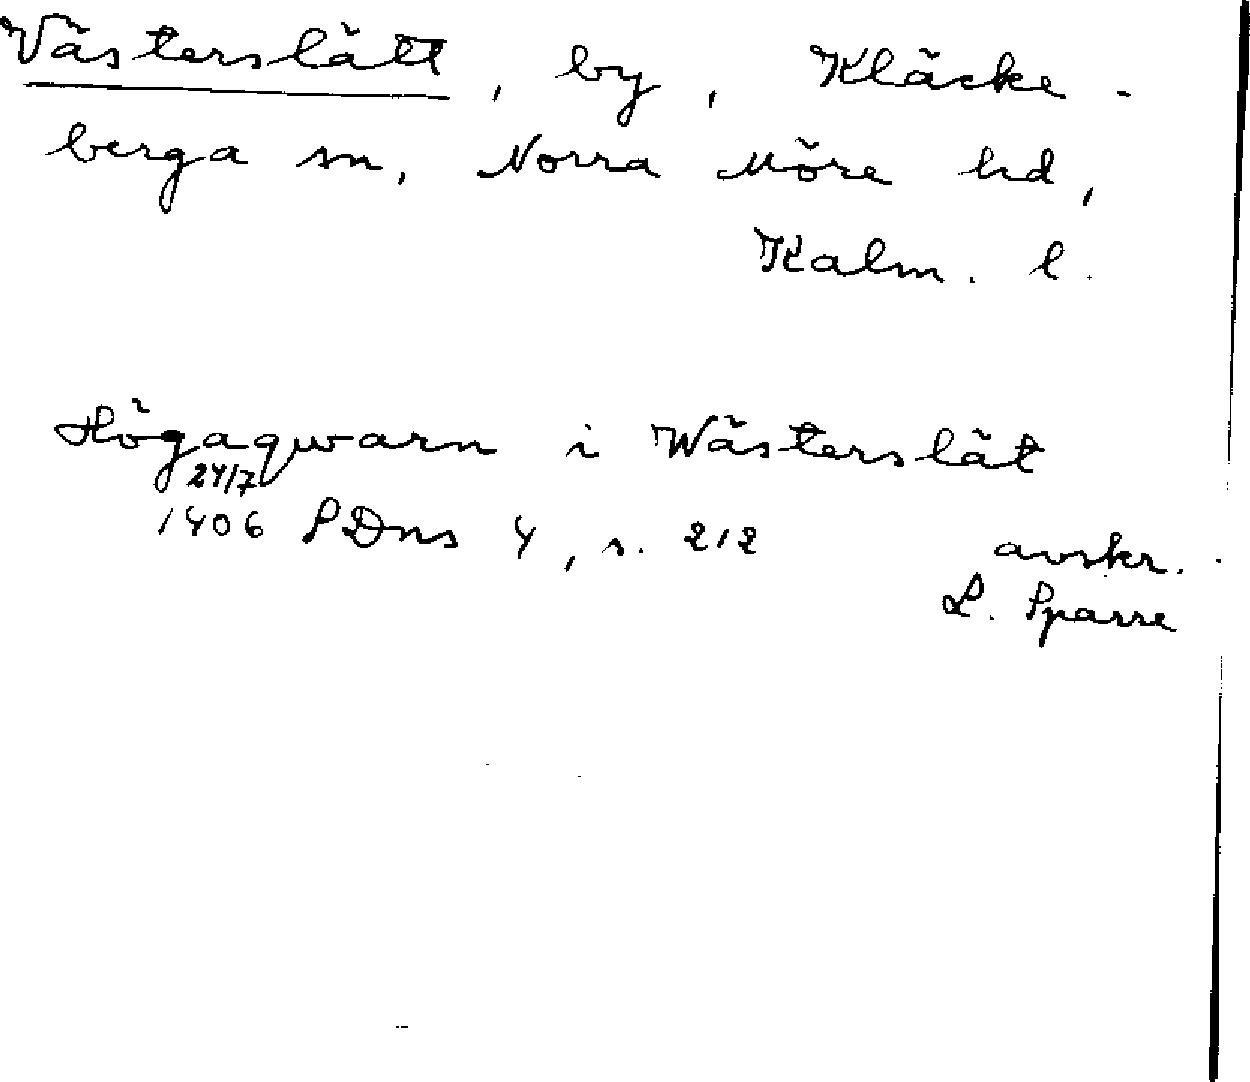 Västerslätt, by, Kläcke-
berga sn, Norra Möre hd,
Kalm. l.
Högaqwarn i Wästerslät
24/7
1406 SDns 4, s. 212
avskr.
L. Sparre